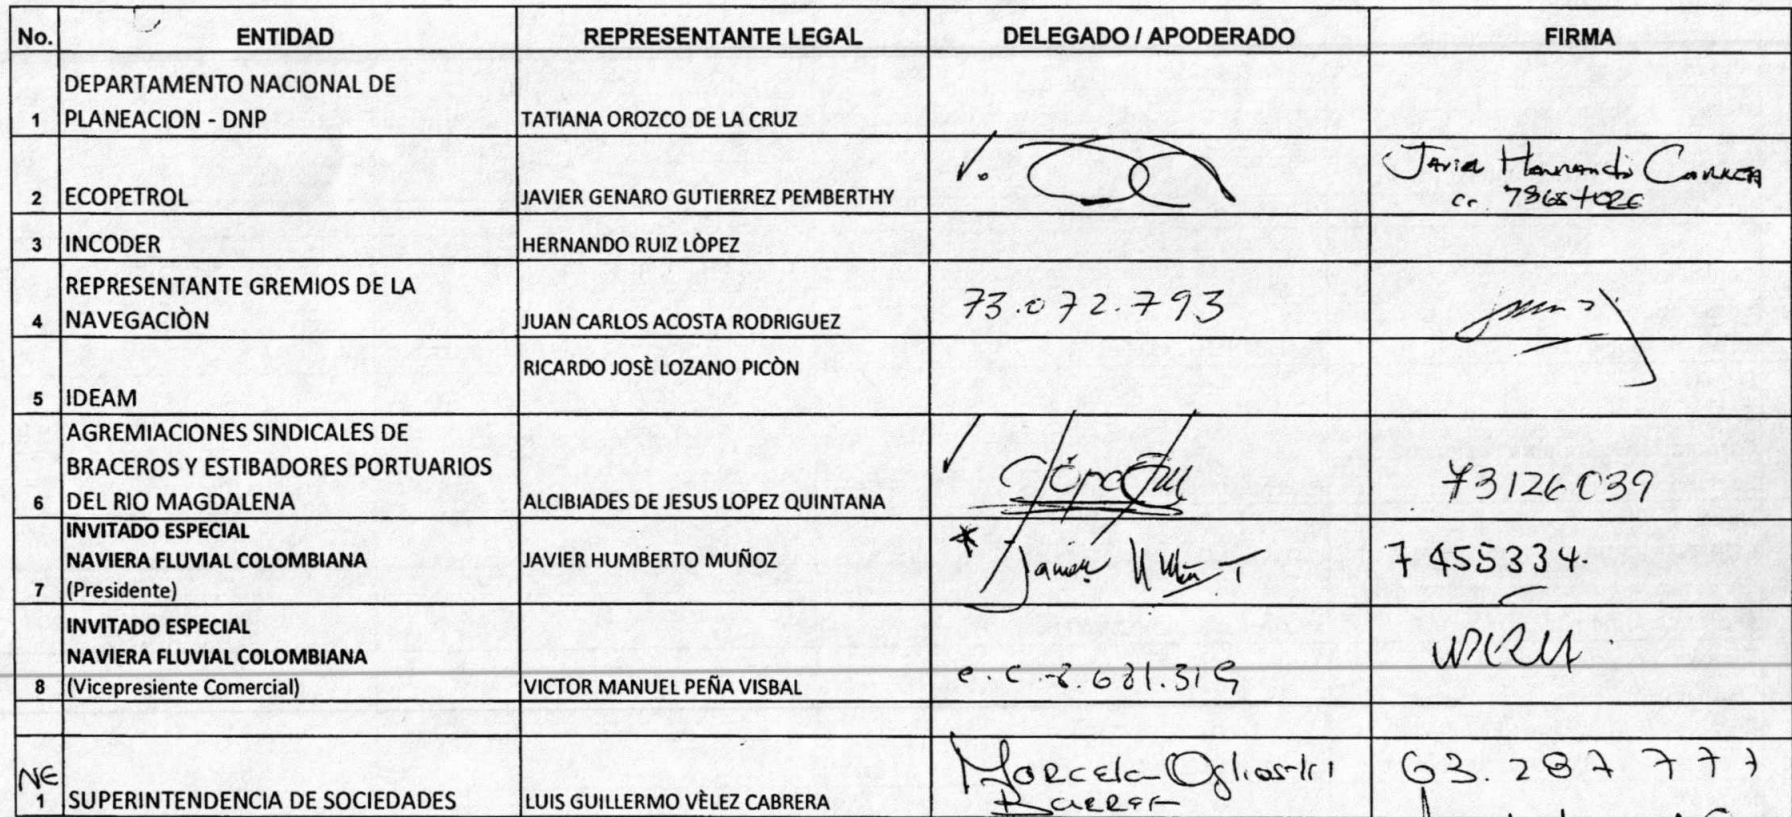 No. ENTIDAD REPRESENTANTE LEGAL DELEGADO / APODERADO FIRMA
DEPARTAMENTO NACIONAL DE
1 PLANEACION - DNP TATIANA OROZCO DE LA CRUZ
Javier Hernando
2 ECOPETROL JAVIER GENARO GUTIERREZ PEMBERTHY cc.
3 INCODER HERNANDO RUIZ LÒPEZ
REPRESENTANTE GREMIOS DE LA
4 NAVEGACIÒN JUAN CARLOS ACOSTA RODRIGUEZ 73.072.793
RICARDO JOSÈ LOZANO PICÒN
5 IDEAM
AGREMIACIONES SINDICALES DE
BRACEROS Y ESTIBADORES PORTUARIOS
6 DEL RIO MAGDALENA ALCIBIADES DE JESUS LOPEZ QUINTANA 73126039
INVITADO ESPECIAL
NAVIERA FLUVIAL COLOMBIANA JAVIER HUMBERTO MUÑOZ Javier 7455334.
7 (Presidente)
INVITADO ESPECIAL
NAVIERA FLUVIAL COLOMBIANA
8 (Vicepresiente Comercial) VICTOR MANUEL PEÑA VISBAL c.c.
NE Marcela Ogliastri 63.287777
1 SUPERINTENDENCIA DE SOCIEDADES LUIS GUILLERMO VÈLEZ CABRERA Barrera